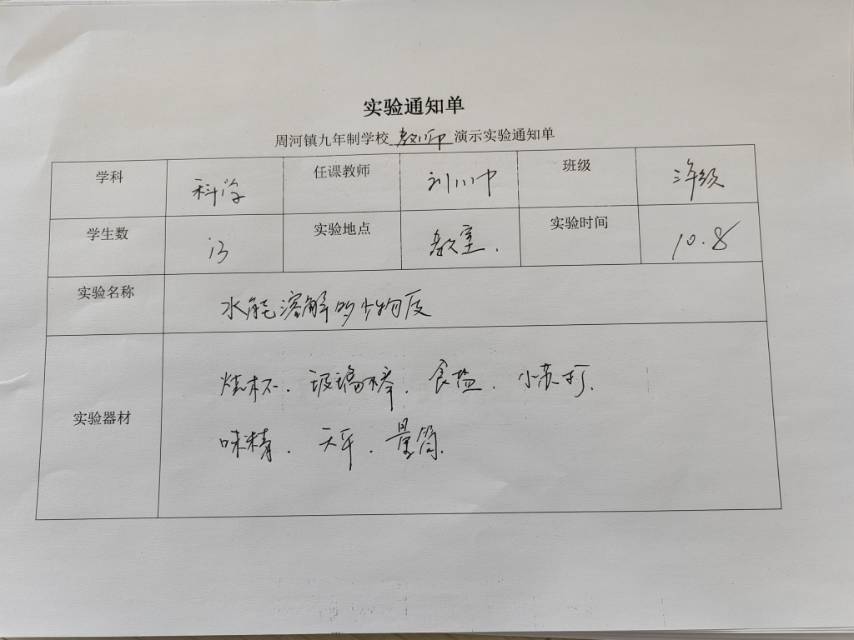 实验通知单
周河镇九年制学校 教师 演示实验通知单
学科 科学 任课教师 刘小中 班级 三年级
学生数 13 实验地点 教室. 实验时间 10.8
实验名称 水能溶解多少物质
烧杯. 玻璃棒. 食盐. 小苏打.
实验器材
味精. 天平. 量筒.